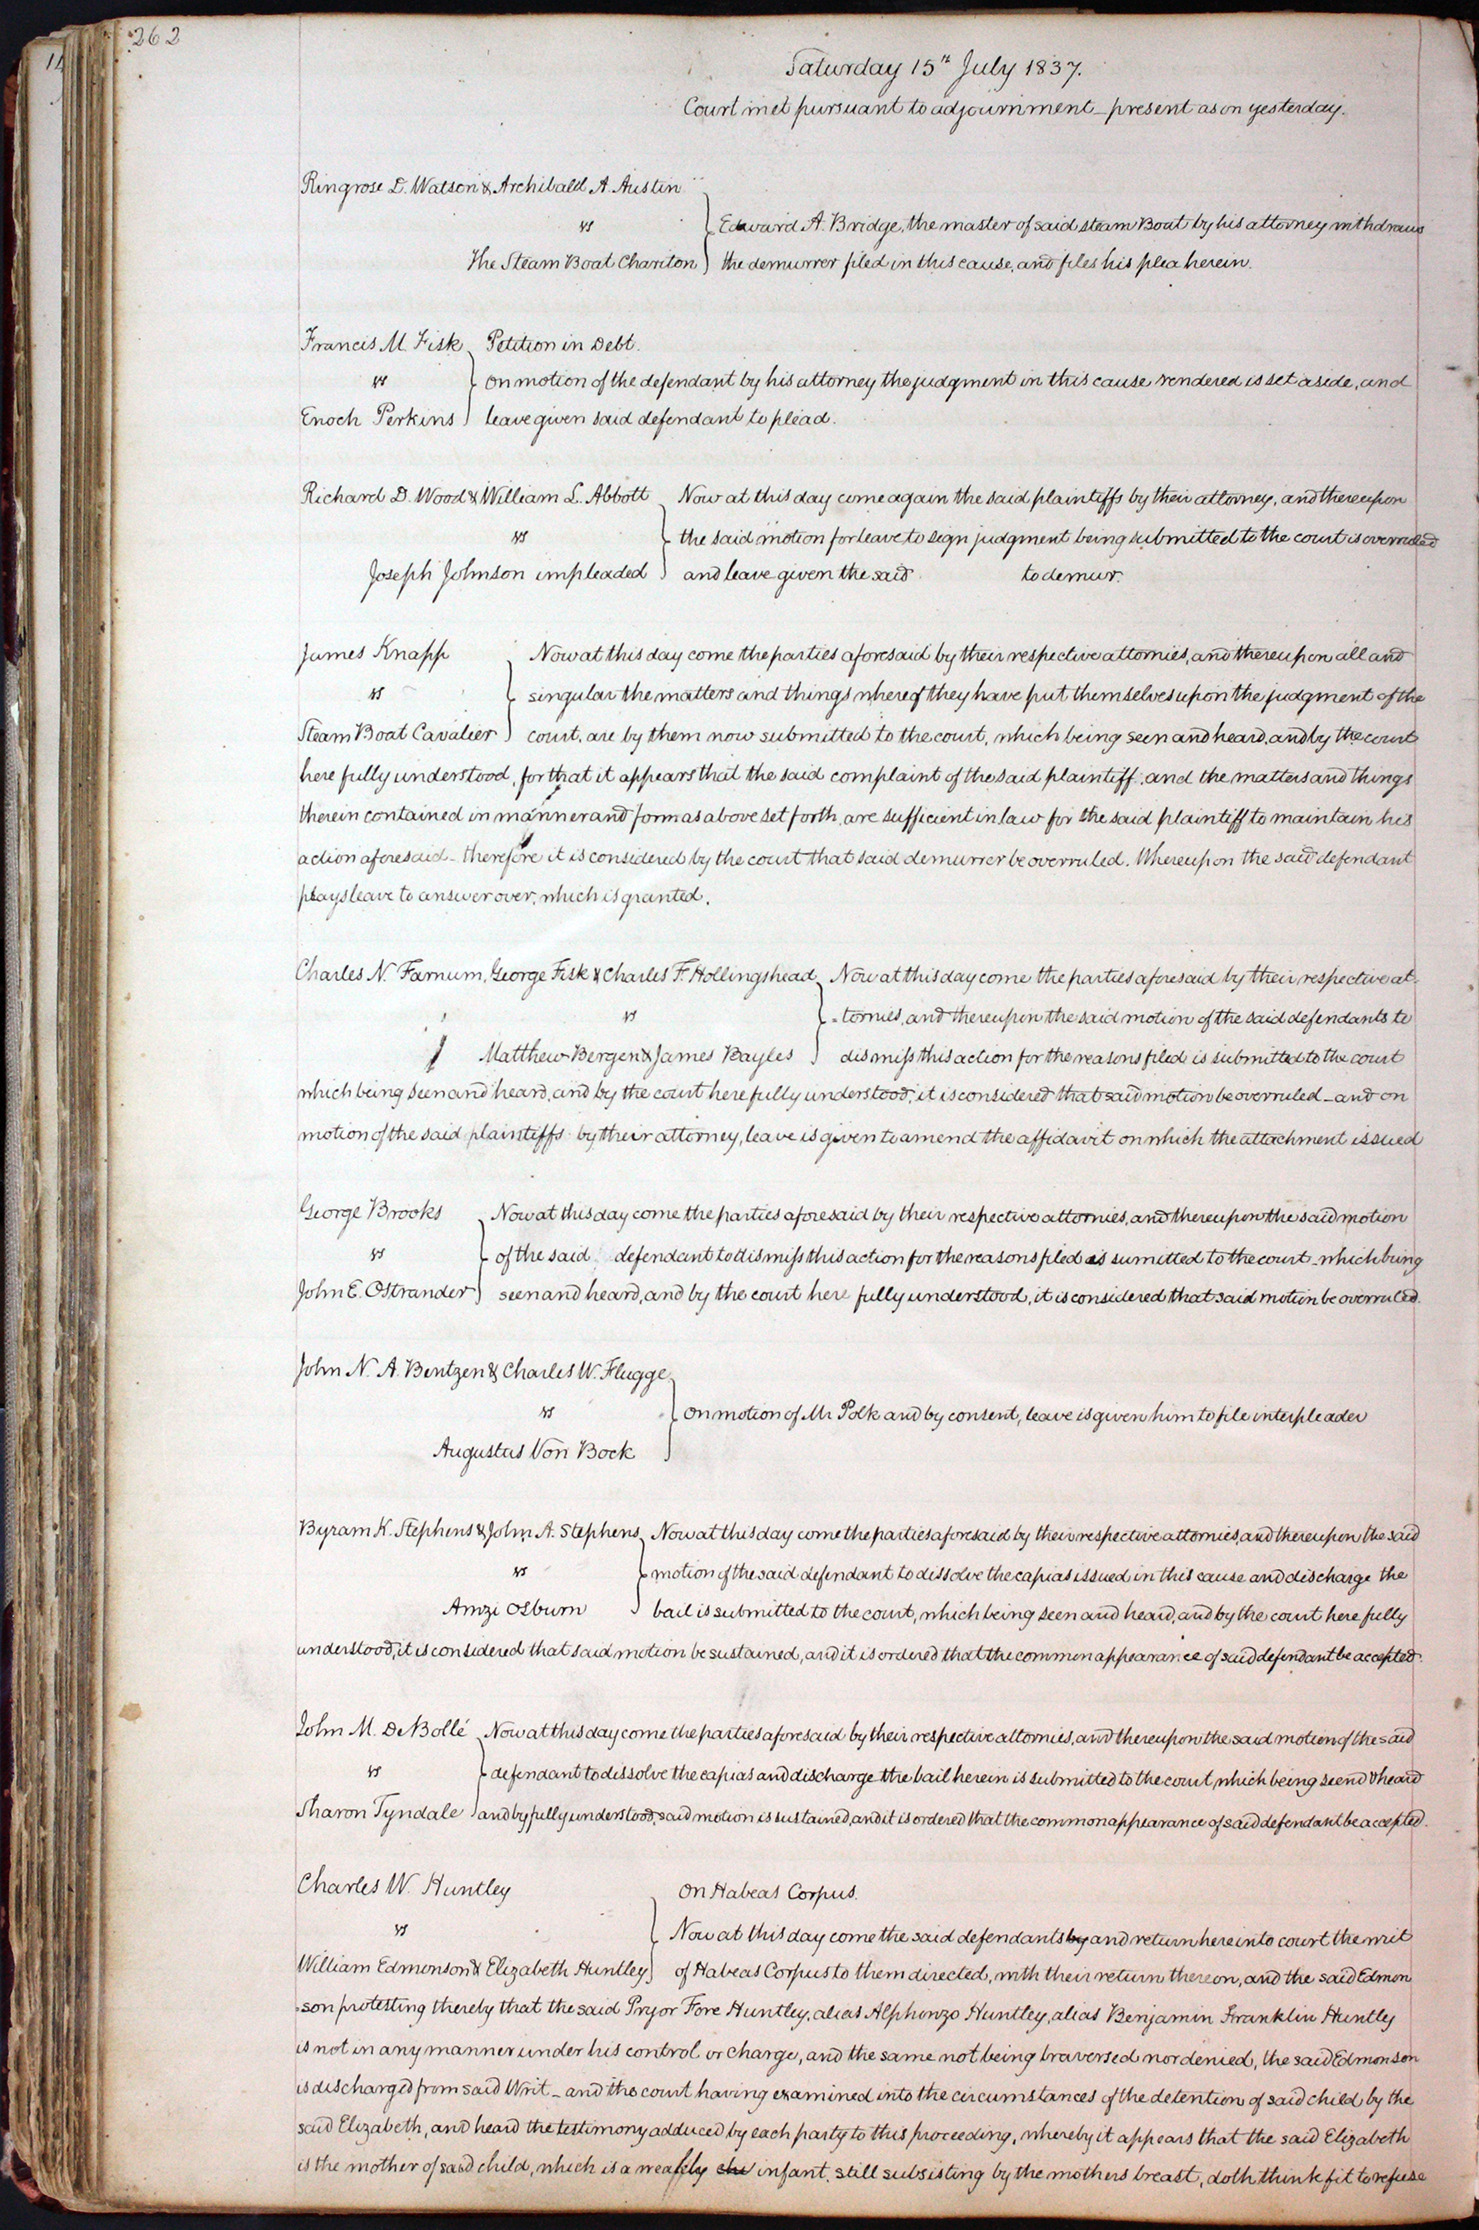 262
11
Saturday 15th July 1837.
Court met pursuant to adjournment _ present as on yesterday.
Ringrose D. Watson & Archibald A. Austin
vs
Edward A. Bridge, the master of said steam Boat by his attorney withdraws
The Steam Boat Chariton
the demurrer filed in this cause, and files his plea herein.
Francis M. Fisk
Petition in Debt.
vs
On motion of the defendant by his attorney the judgment in this cause rendered is set aside, and
Enoch Perkins
leave given said defendant to plead.
Richard D. Wood & William L. Abbott
Now at this day come again the said plaintiffs by their attorney, and thereupon
vs
the said motion for leave to sign judgment being submitted to the court is overruled
Joseph Johnson impleaded
and leave given the said to demur.
James Knapp
Now at this day come the parties aforesaid by their respective attornies, and thereupon all and
vs
singular the matters and things whereof they have put themselves upon the judgment of the
Steam Boat Cavalier
court, are by them now submitted to the court, which being seen and heard, and by the court
here fully understood, for that it appears that the said complaint of the said plaintiff, and the matters and things
therein contained in manner and form as above set forth, are sufficient in law for the said plaintiff to maintain his
action aforesaid _ therefore it is considered by the court that said demurrer be overruled. Whereupon the said defendant
prays leave to answer over, which is granted.
Charles N. Farnum, George Fisk & Charles F. Hollingshead
Now at this day come the parties aforesaid by their respective at-
vs
-tornies, and thereupon the said motion of the said defendants to
Matthew Bergen & James Bayles
dismiss this action for the reasons filed is submitted to the court
which being seen and heard, and by the court here fully understood, it is considered that said motion be overruled _ and on
motion of the said plaintiffs by their attorney, leave is given to amend the affidavit on which the attachment issued
George Brooks
Now at this day come the parties aforesaid by their respective attornies, and thereupon the said motion
vs
of the said defendant to dismiss this action for the reasons filed is sumitted to the court _ which being
John E. Ostrander
seen and heard, and by the court here fully understood, it is considered that said motion be overruled.
John N. A. Bentzen & Charles W. Flugge
vs
On motion of Mr Polk and by consent, leave is given him to file interpleader
Augustus Von Bock
Byram K. Stephens & John A. Stephens
Now at this day come the parties aforesaid by their respective attornies, and thereupon the said
vs
motion of the said defendant to dissolve the capias issued in this cause and discharge the
Amzi Osburn
bail is submitted to the court, which being seen and heard, and by the court here fully
understood, it is considered that said motion be sustained, and it is ordered that the common appearance of said defendant be accepted.
John M. DeBollé
Now at this day come the parties aforesaid by their respective attornies, and thereupon the said motion of the said
vs
defendant to dissolve the capias and discharge the bail herein is submitted to the court, which being seend & heard
Sharon Tyndale
and by fully understood, said motion is sustained, and it is ordered that the common appearance of said defendant be accepted.
Charles W. Huntley
On Habeas Corpus.
vs
Now at this day come the said defendants by and return here into court the writ
William Edmonson & Elizabeth Huntley
of Habeas Corpus to them directed, with their return thereon, and the said Edmon
-son protesting thereby that the said Pryor Fore Huntley, alias Alphonzo Huntley, alias Benjamin Franklin Huntley
is not in any manner under his control or charge, and the same not being traversed nor denied, the said Edmonson
is discharged from said Writ _ and the court having examined into the circumstances of the detention of said child by the
said Elizabeth, and heard the testimony adduced by each party to this proceeding, whereby it appears that the said Elizabeth
is the mother of said child, which is a weakly chi infant, still subsisting by the mothers breast, doth think fit to refuse